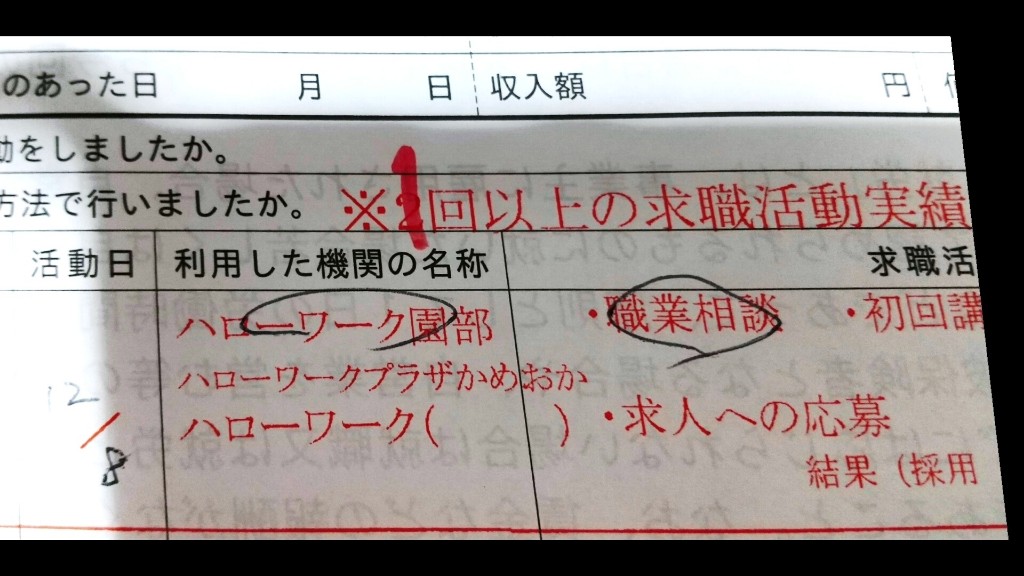 のあった日 月 日 収入額 円
動をしましたか。
方法で行いましたか。 ※1回以上の求職活動実績
活動日 利用した機関の名称 求職活
ハローワーク園部 ・職業相談 ・初回講
ハローワークプラザかめおか
12/8 ハローワーク( ) ・求人への応募
結果(採用